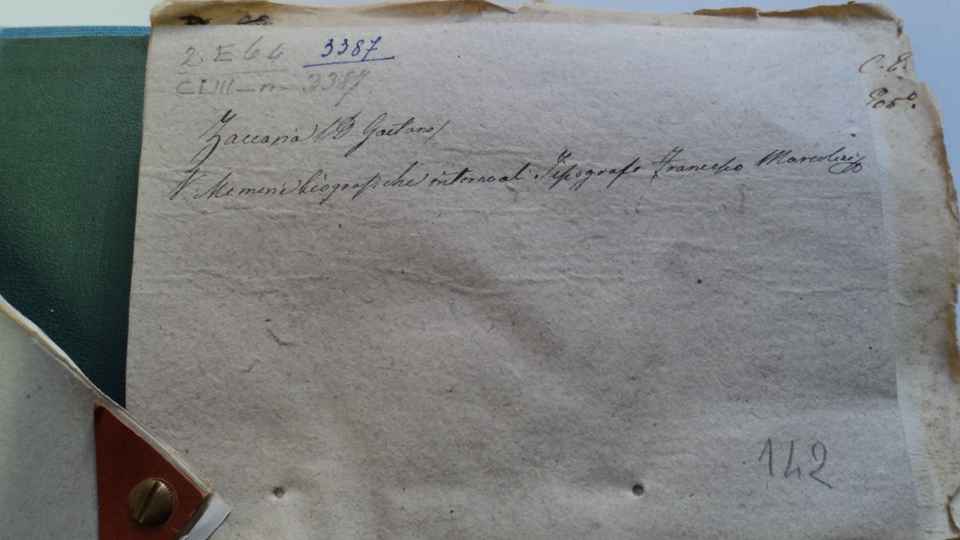 2. E 64 3387
CLIII - n - 3387
C. E.
Pos.e
Zaccaria (D Gaetano)
V. Memorie biografiche intorno al Tipografo Francesco Marcolini
142